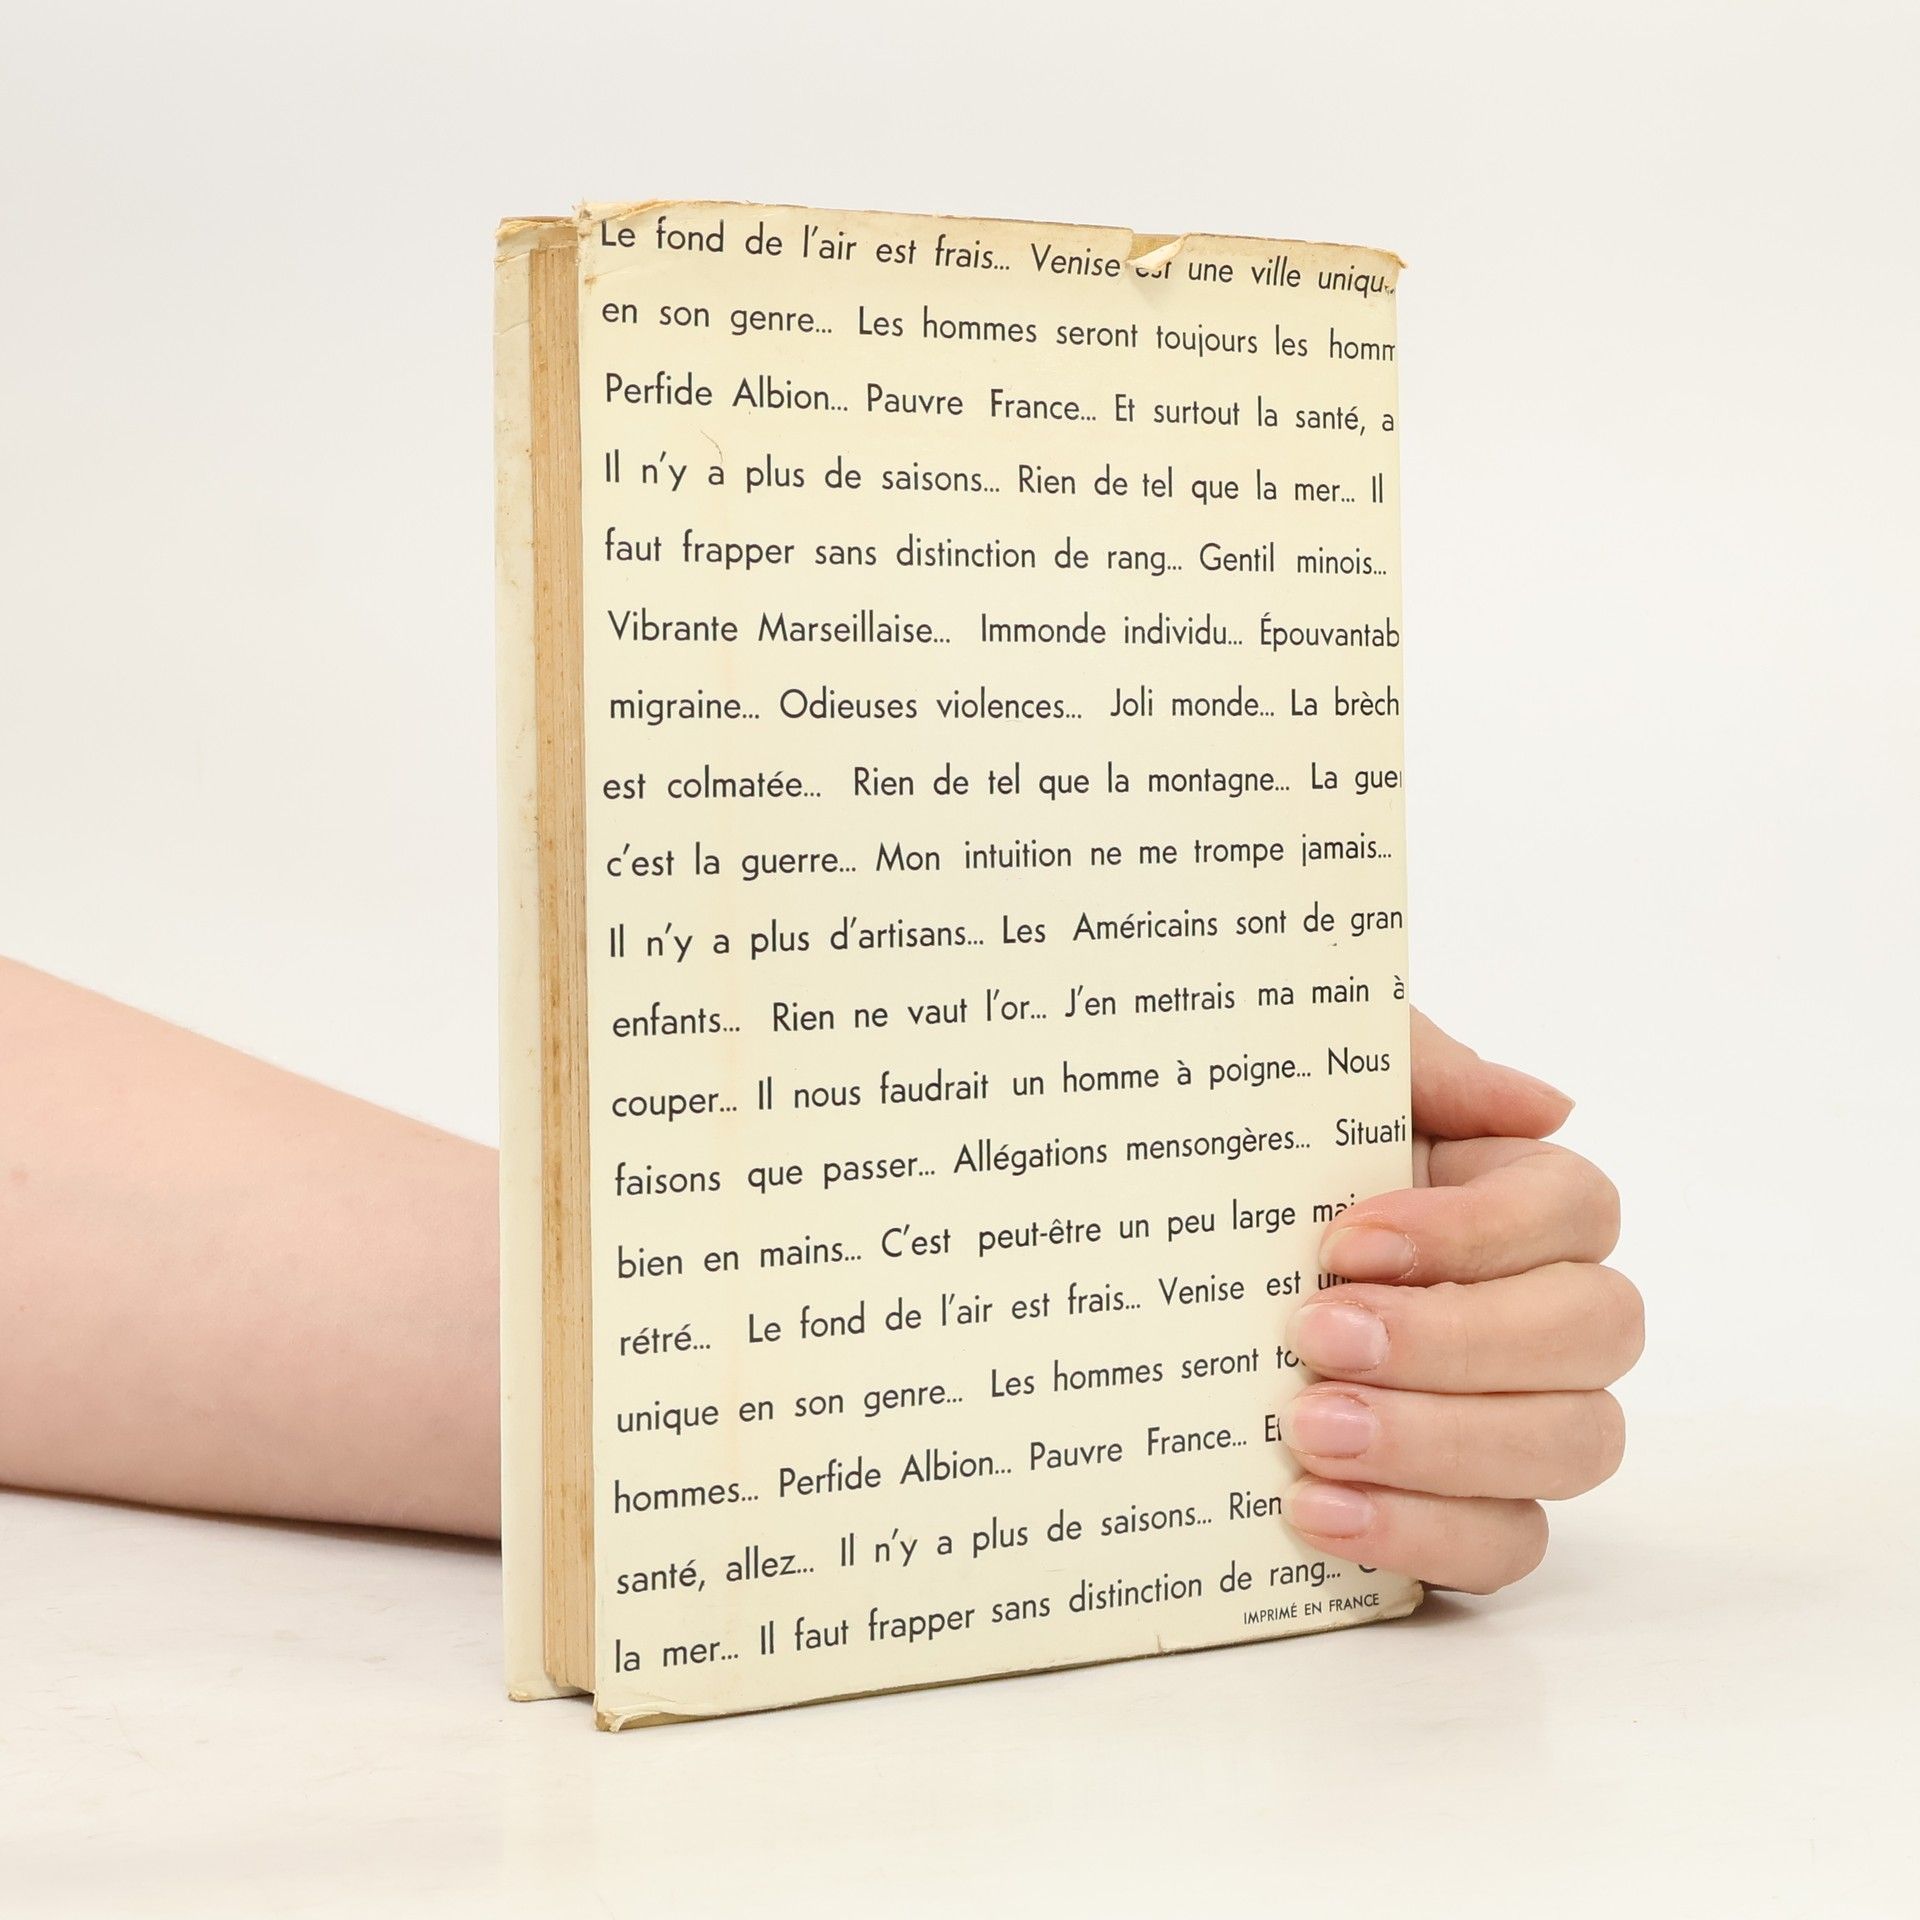 Le fond de l'air est frais... Venise est une ville uniqu
en son genre... Les hommes seront toujours les homm
Perfide Albion... Pauvre France... Et surtout la santé, a
Il n'y a plus de saisons... Rien de tel que la mer... Il
faut frapper sans distinction de rang... Gentil minois...
Vibrante Marseillaise... Immonde individu... Épouvantab
migraine... Odieuses violences... Joli monde... La brèch
est colmatée... Rien de tel que la montagne... La guer
c'est la guerre... Mon intuition ne me trompe jamais...
Il n'y a plus d'artisans... Les Américains sont de gran
enfants... Rien ne vaut l'or... J'en mettrais ma main à
couper... Il nous faudrait un homme à poigne... Nous
faisons que passer... Allégations mensongères... Situati
bien en mains... C'est peut-être un peu large mai
rétré... Le fond de l'air est frais... Venise est un
unique en son genre... Les hommes seront to
hommes... Perfide Albion... Pauvre France... Et
santé, allez... Il n'y a plus de saisons... Rien
la mer... Il faut frapper sans distinction de rang...
IMPRIMÉ EN FRANCE